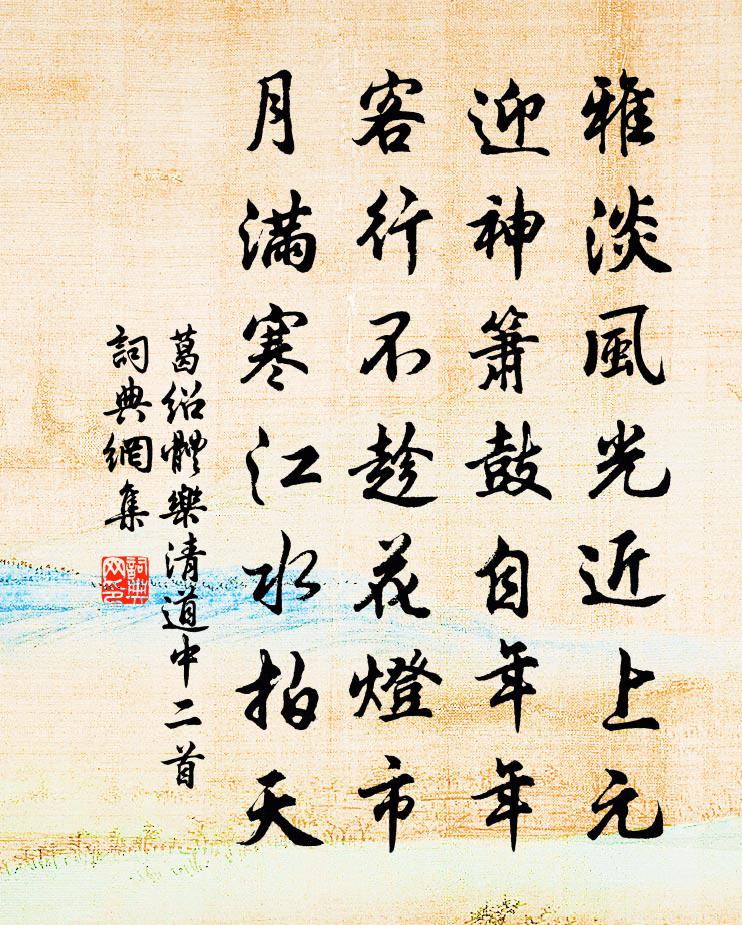 雅淡風光近上元
迎神簫鼓自年年
客行不趁花燈市
月滿寒江水拍天
葛紹體樂清道中二首
詞典網集